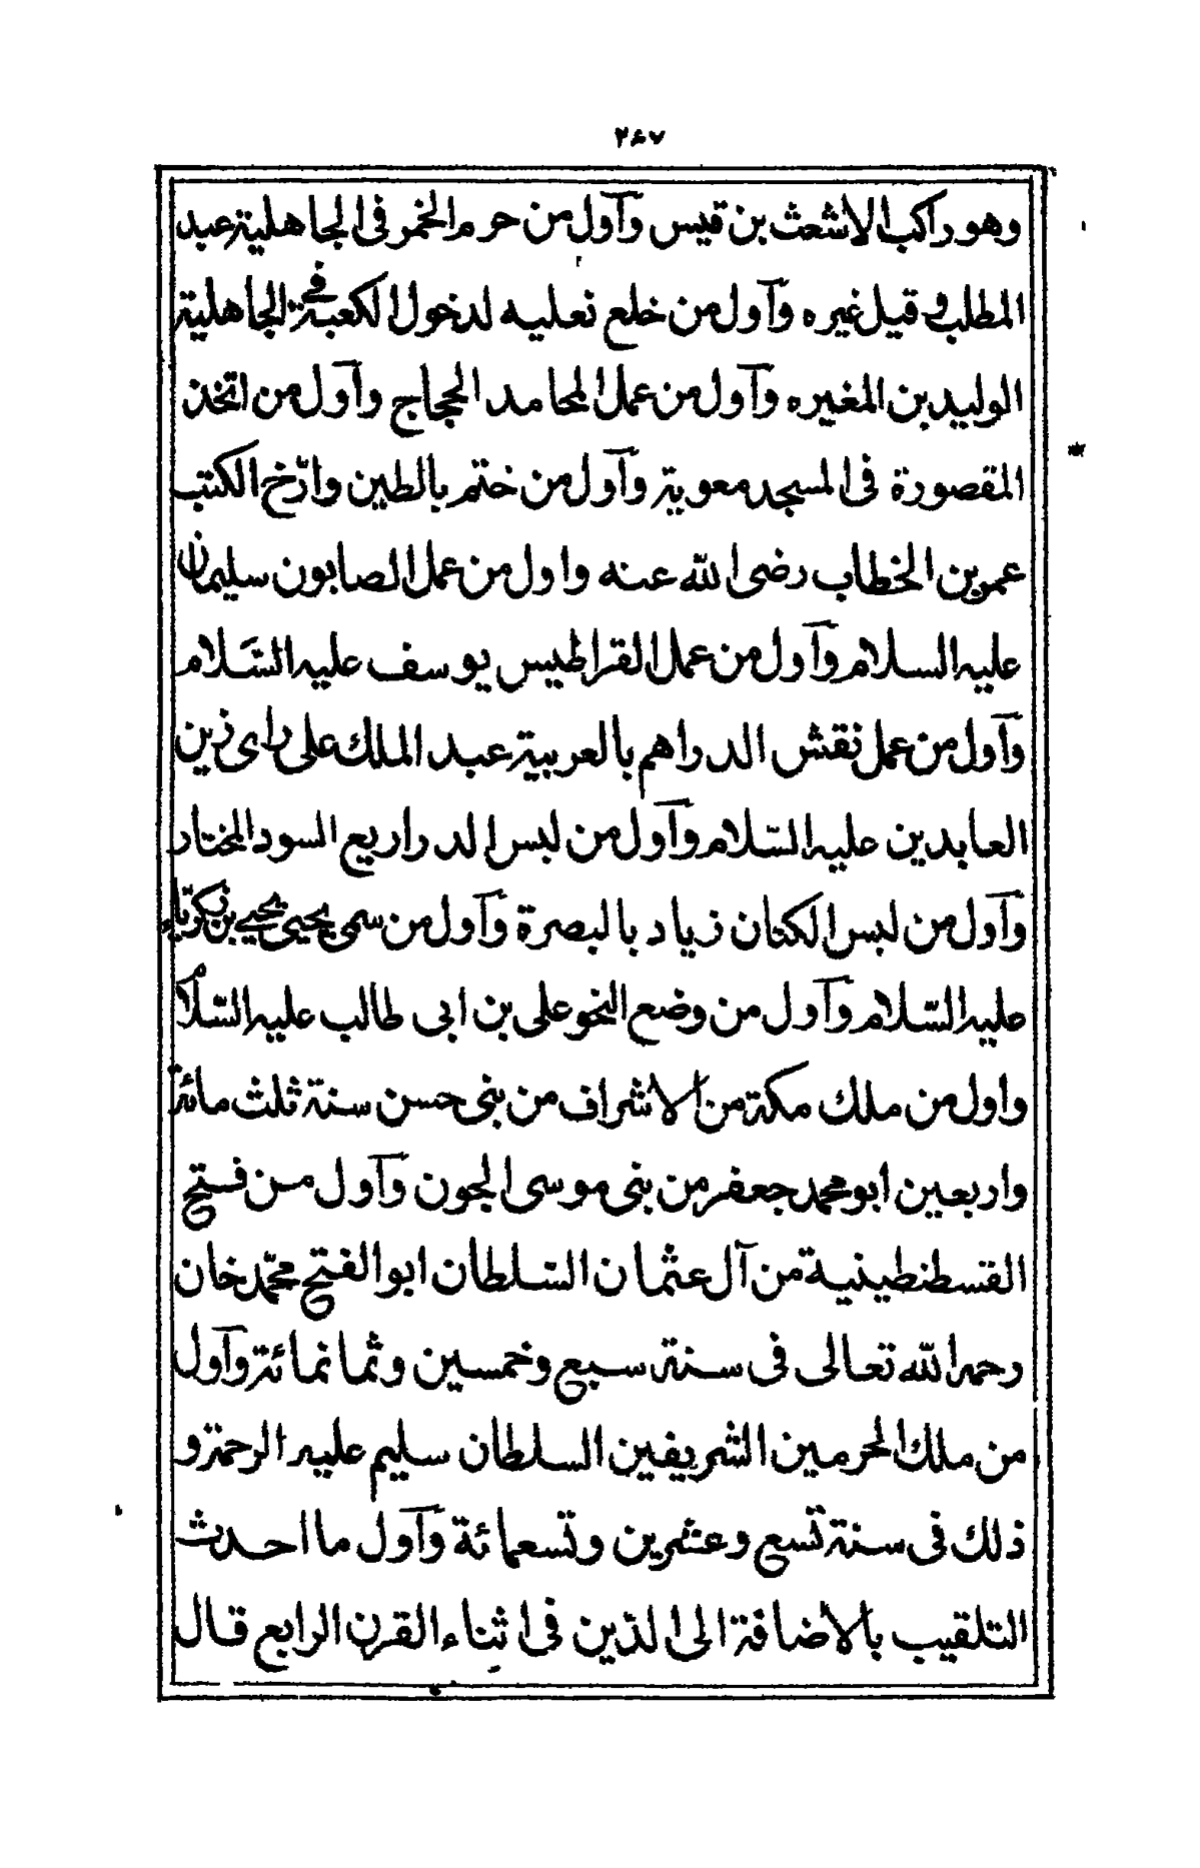 ٢٤٧
وهو راكب الاشعث بن قيس وآول من حرم الخمر في الجاهلية عبد
المطلب وقيل غيره وآول من خلع نعليه لدخول الكعبة في الجاهلية
الوليد بن المغيره وآول من عمل المحامد الحجاج وآول من اتخذ
المقصورة في المسجد معوية وآول من ختم بالطين وارّخ الكتب
عمر بن الخطاب رضى الله عنه واول من عمل الصابون سليمان
عليه السلام وآول من عمل القراطيس يوسف عليه السَّلام
وآول من عمل نقش الدراهم بالعربية عبد الملك على راى زين
العابدين عليه السّلام وآول من لبس الدراريع السود المختار
وآول من لبس الكتان زياد بالبصرة وآول من سمى يحيى يحيى بن زكريّاء
عليه السّلام وآول من وضع النحو على بن ابى طالب عليه السّلام
واول من ملك مكة من الاشراف من بنى حسن سنة ثلث مائة
واربعين ابو محمد جعفر من بنى موسى الجون وآول من فتح
القسطنطينية من آل عثمان السّلطان ابو الفتح محمّد خان
رحمه الله تعالى في سنة سبع وخمسين وثمانمائة وآول
من ملك الحرمين الشريفين السلطان سليم عليه الرحمة و
ذلك في سنة تسع وعشرين وتسعمائة وآول ما احدث
التلقيب بالاضافة الى الدّين في اثناء القرن الرابع قال